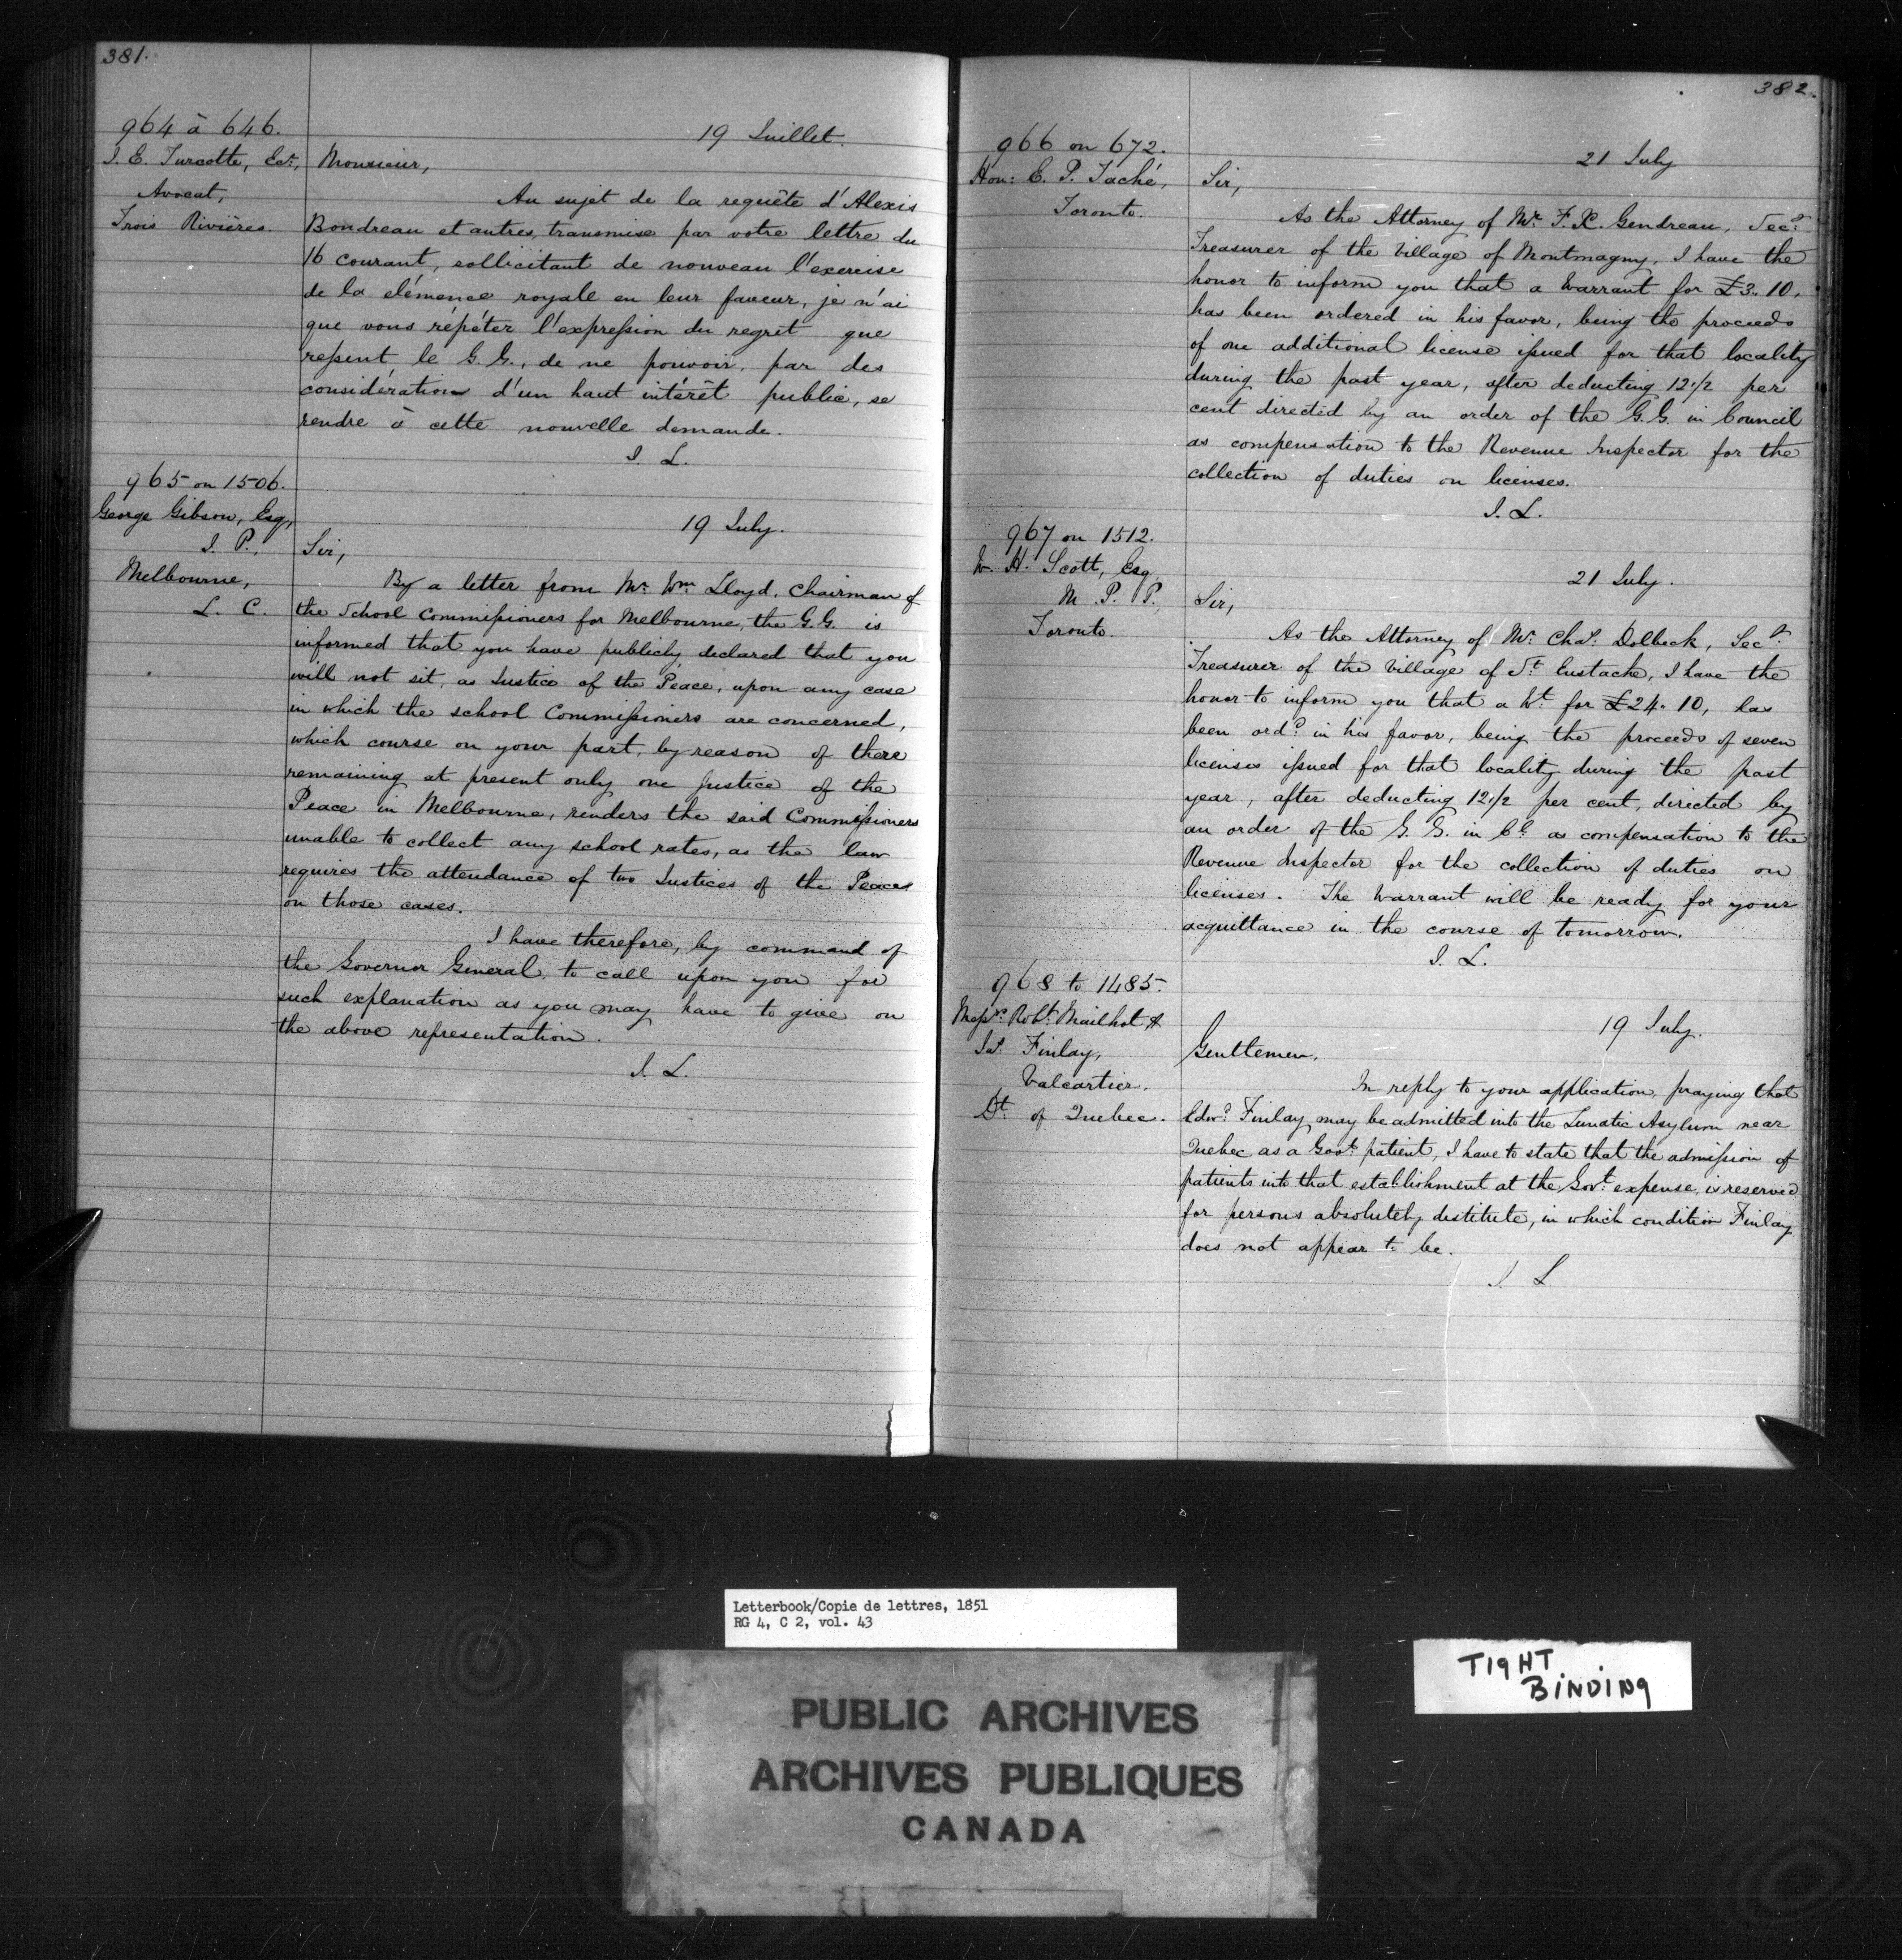 381.
964 à 646.
J. E. Turcotte, Ecr,
Avocat,
Trois Rivières.
19 Juillet.
Monsieur,
Au sujet de la requête d'Alexis
Boudreau et autres, transmise par votre lettre du
16 courant, sollicitant de nouveau l'exercise
de la clémence royale en leur faveur, je n'ai
que vous répéter l'expression du regret que
ressent le G. G., de ne pouvoir, par des
considérations d'un haut intérêt public, se
rendre à cette nouvelle demande.
J. L.
965 on 1506.
George Gibson, Esq,
J. P.,
Melbourne,
L. C.
19 July.
Sir,
By a letter from Mr. Wm. Lloyd, Chairman of
the School Commissioners for Melbourne, the G.G. is
informed that you have publicly declared that you
will not sit, as Justice of the Peace, upon any case
in which the school Commissioners are concerned,
which course on your part, by reason of there
remaining at present only one Justice of the
Peace in Melbourne, renders the said Commissioners
unable to collect any school rates, as the law
requires the attendance of two Justices of the Peace
on those cases.
I have therefore, by command of
the Governor General, to call upon you for
such explanation as you may have to give on
the above representation.
J. L.
382.
966 on 672.
Hon: E. P. Taché,
Toronto.
21 July
Sir,
As the Attorney of Mr. F. X. Gendreau, Secy.
Treasurer of the Village of Montmagny, I have the
honor to inform you that a Warrant for £3.10,
has been ordered in his favor, being the proceeds
of one additional license issued for that locality
during the past year, after deducting 12 1/2 per
cent directed by an order of the G.G. in Council
as compensation to the Revenue Inspector for the
collection of duties on licenses.
J. L.
967 on 1512.
W. H. Scott, Esq
M. P. P.,
Toronto.
21 July.
Sir,
As the Attorney of Mr. Chas. Dolbeck, Secy.
Treasurer of the Village of St. Eustache, I have the
honor to inform you that a Wt. for £24.10, has
been ordd. in his favor, being the proceeds of seven
licenses issued for that locality during the past
year, after deducting 12 1/2 per cent, directed by
an order of the G. G. in Cl. as compensation to the
Revenue Inspector for the collection of duties on
licenses. The Warrant will be ready for your
acquittance in the course of tomorrow.
J. L.
968 to 1485.
Messrs. Robt. Mailhot &
Js. Finlay,
Valcartier.
Dt. of Quebec.
19 July.
Gentlemen,
In reply to your application, praying that
Edwd. Finlay may be admitted into the Lunatic Asylum near
Quebec as a Govt. patient, I have to state that the admission of
patients into that establishment at the Govt. expense, is reserved
for persons absolutely destitute, in which condition Finlay
does not appear to be.
J. L.
Letterbook/Copie de lettres, 1851
RG 4, C 2, vol. 43
TIGHT
BINDING
PUBLIC ARCHIVES
ARCHIVES PUBLIQUES
CANADA